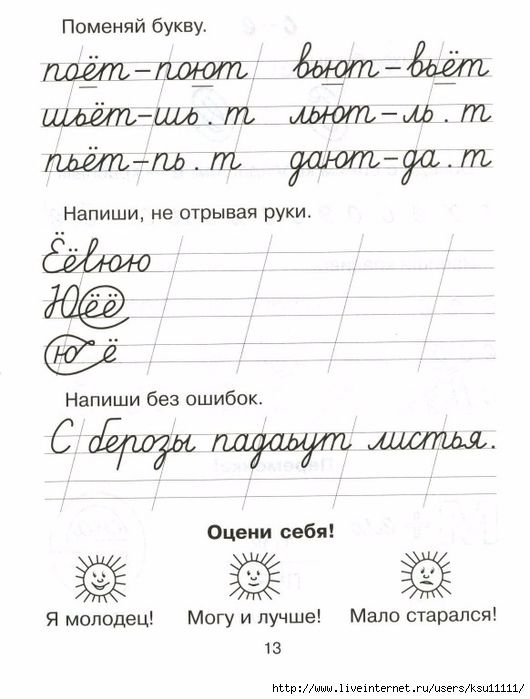 Поменяй букву.
поёт – поют вьют – вьёт
шьёт – шь . т льют – ль . т
пьёт – пь . т дают – да . т
Напиши, не отрывая руки.
Ёёвюю
Ю ё ё
ю ё
Напиши без ошибок.
С берозы падаьут листья.
Оцени себя!
Я молодец! Могу и лучше! Мало старался!
13
http://www.liveinternet.ru/users/ksu11111/